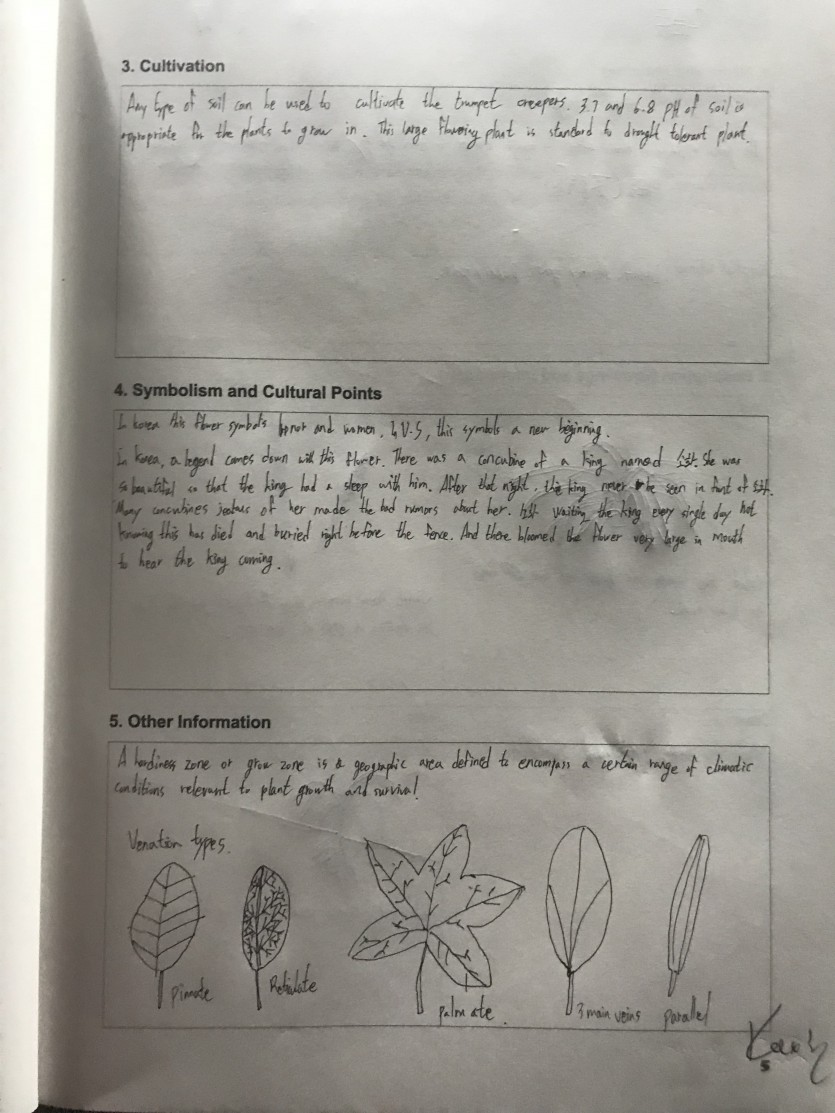 3. Cultivation
Any type of soil can be used to cultivate the trumpet creepers. 3.7 and 6.8 pH of soil is
appropriate for the plants to grow in. This large flowering plant is standard to drought tolerant plant.
4. Symbolism and Cultural Points
In korea this flower symbols honor and women. In U.S, this symbols a new beginning.
In korea, a legend comes down with this flower. There was a concubine of a king named 소화. She was
so beautiful so that the king had a sleep with him. After that night, the king never be seen in front of 소화.
Many concubines jealous of her made the bad rumors about her. 소화 waiting the king every single day not
knowing this has died and buried right before the fence. And there bloomed the flower very large in mouth
to hear the king coming.
5. Other Information
A hardiness zone or grow zone is a geographic area defined to encompass a certain range of climatic
conditions relevant to plant growth and survival
Venation types.
pinnate
Reticulate
palmate.
3 main veins
parallel
5